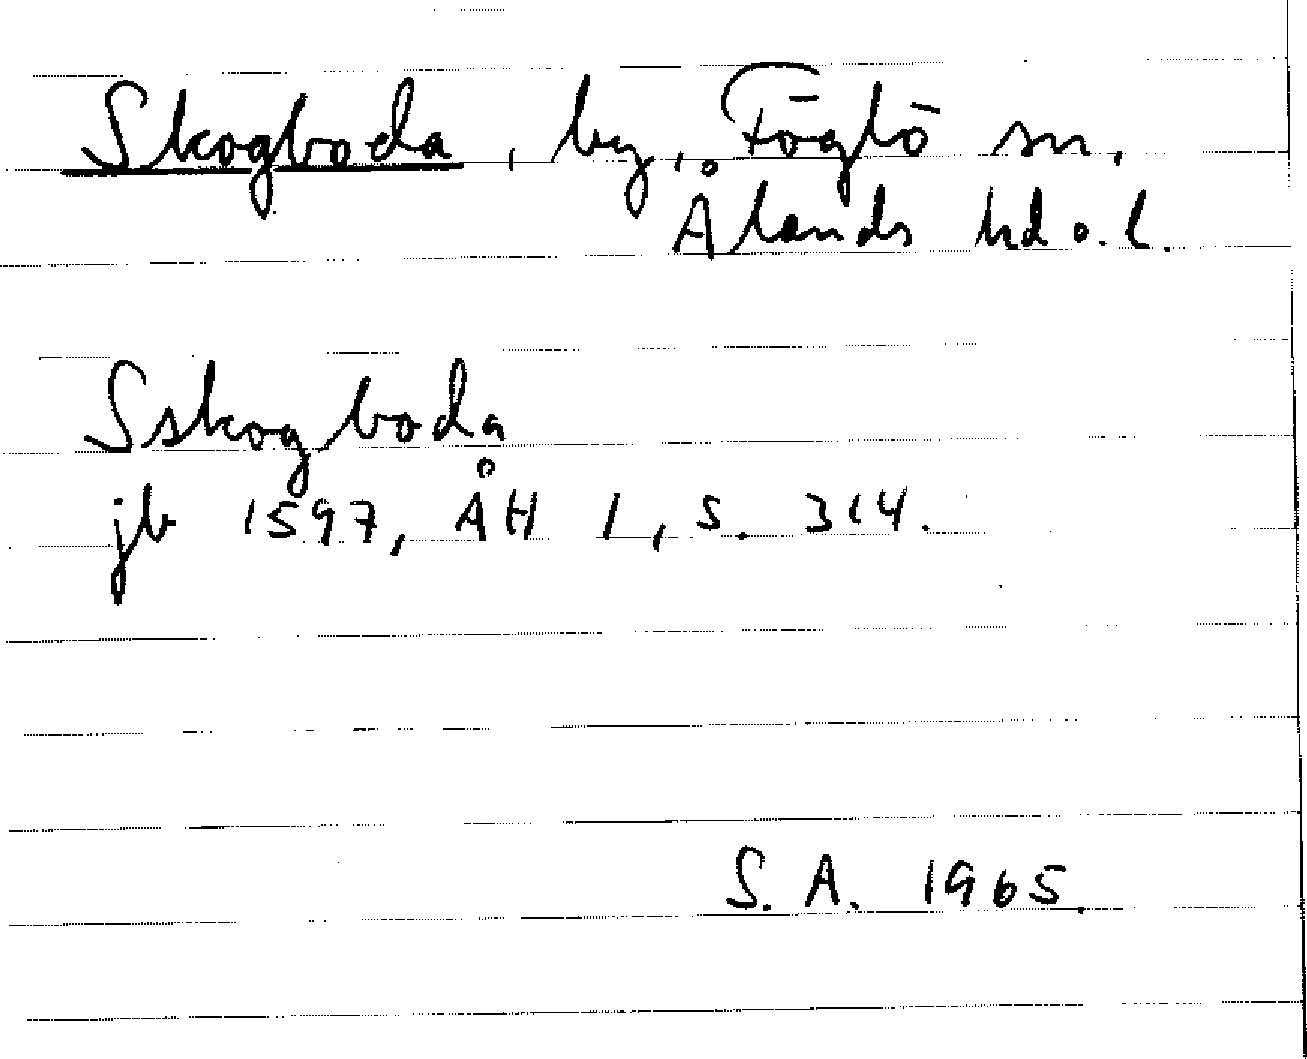 Skogboda, by, Föglö sn,
Ålands hd o. l.
Sskogboda
jb 1597, ÅH 1, s. 314.
S. A. 1965.